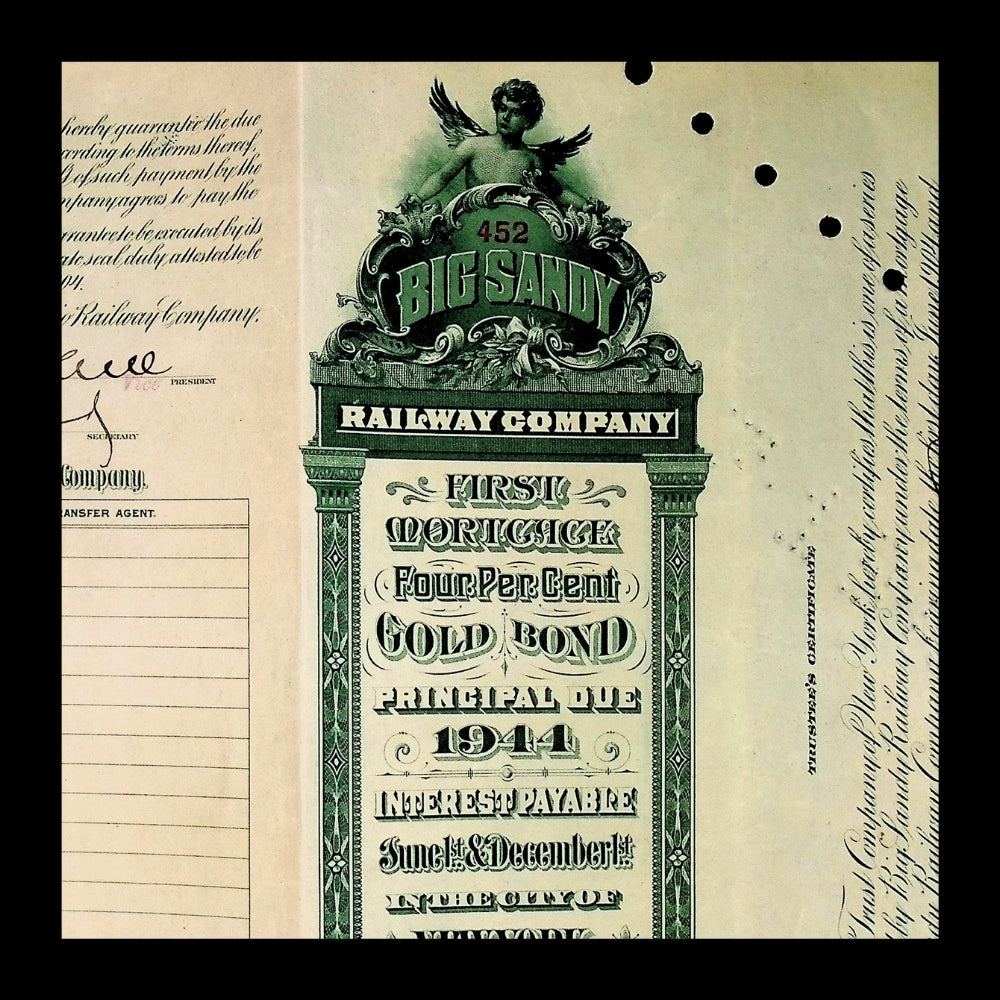 hereby guarantee the due
cording to the terms thereof,
of such payment by the
mpany agrees to pay the
rrantee to be executed by its
ate seal, duly attested to be
04.
Railway Company.
Vice PRESIDENT
SECRETARY
Company.
ANSFER AGENT.
452
BIG SANDY
RAILWAY COMPANY
FIRST
MORTGAGE
Four Per Cent
GOLD BOND
PRINCIPAL DUE
1944
INTEREST PAYABLE
June 1st & December 1st
IN THE CITY OF
NEW YORK
TRUSTEE'S CERTIFICATE
Trust Company of New York, hereby certifies that this is one of a series
by Big Sandy Railway Company under the terms of a Mortgage
Railway Company bearing date June 1904 and